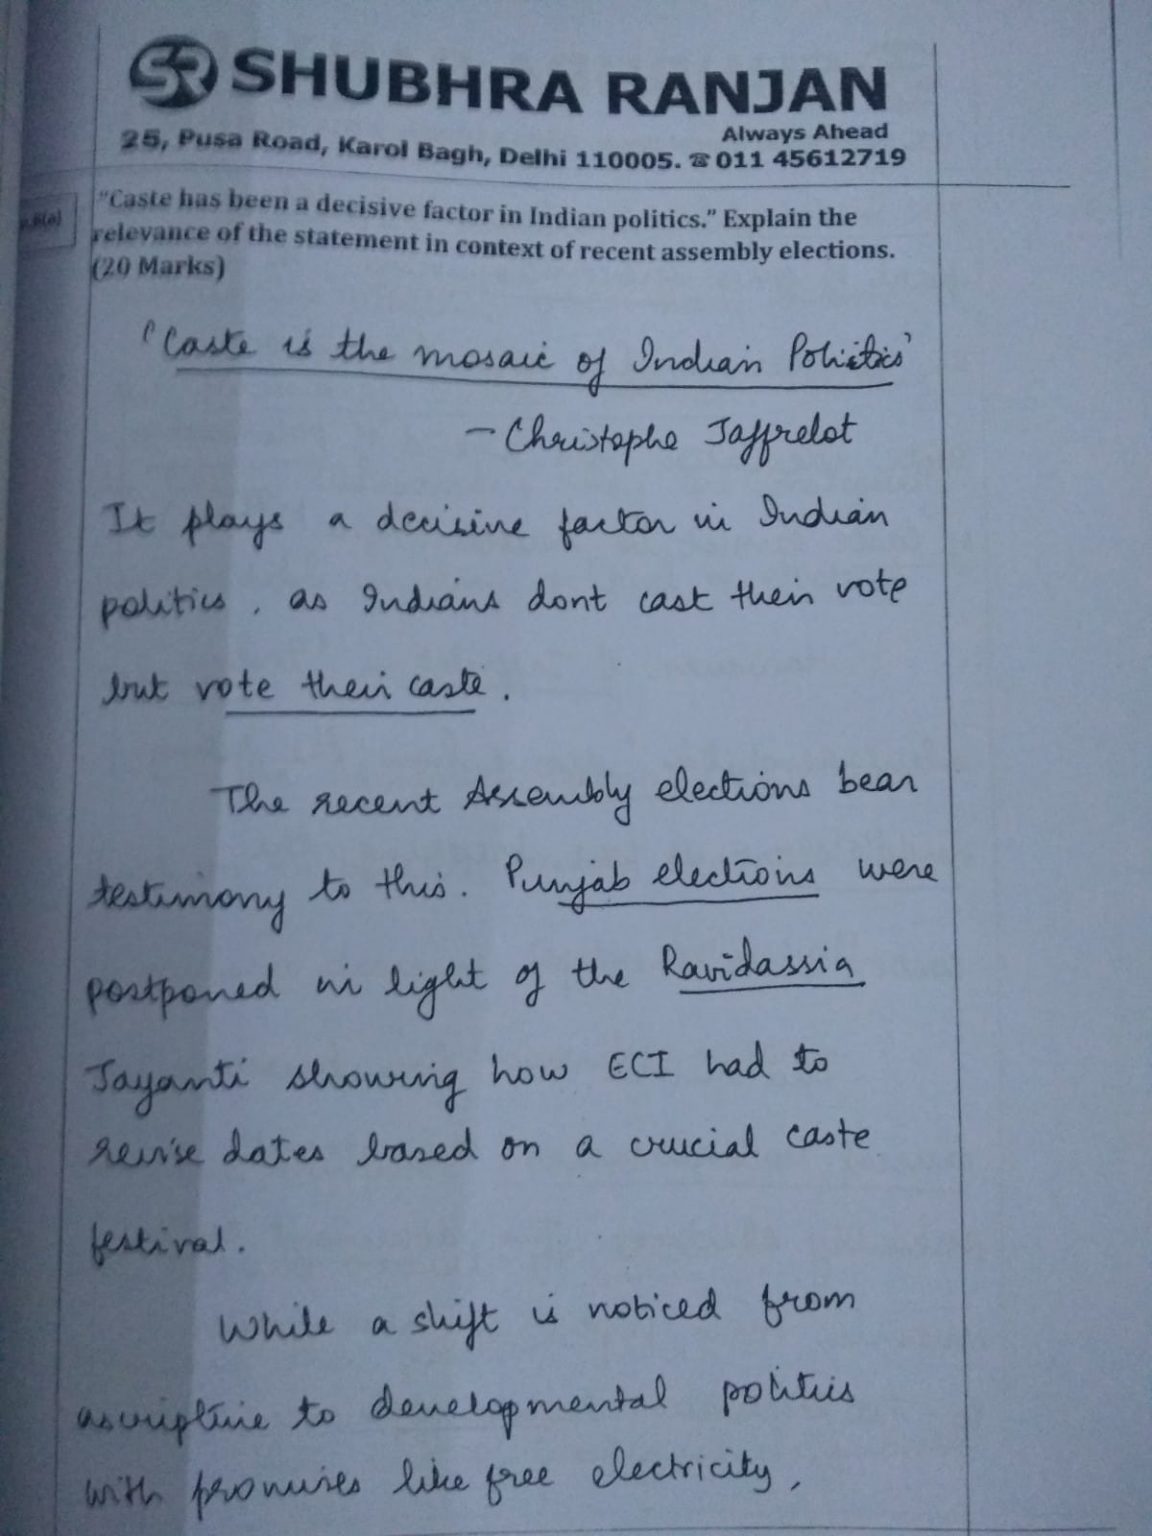 SR SHUBHRA RANJAN
Always Ahead
25, Pusa Road, Karol Bagh, Delhi 110005. ☎ 011 45612719
"Caste has been a decisive factor in Indian politics." Explain the
relevance of the statement in context of recent assembly elections.
(20 Marks)
'Caste is the mosaic of Indian Politics'
- Christophe Jaffrelot
It plays a decisive factor in Indian
politics, as Indians dont cast their vote
but vote their caste.
The recent Assembly elections bear
testimony to this. Punjab elections were
postponed in light of the Ravidassia
Jayanti showing how ECI had to
revise dates based on a crucial caste
festival.
While a shift is noticed from
ascriptive to developmental politics
with promises like free electricity,